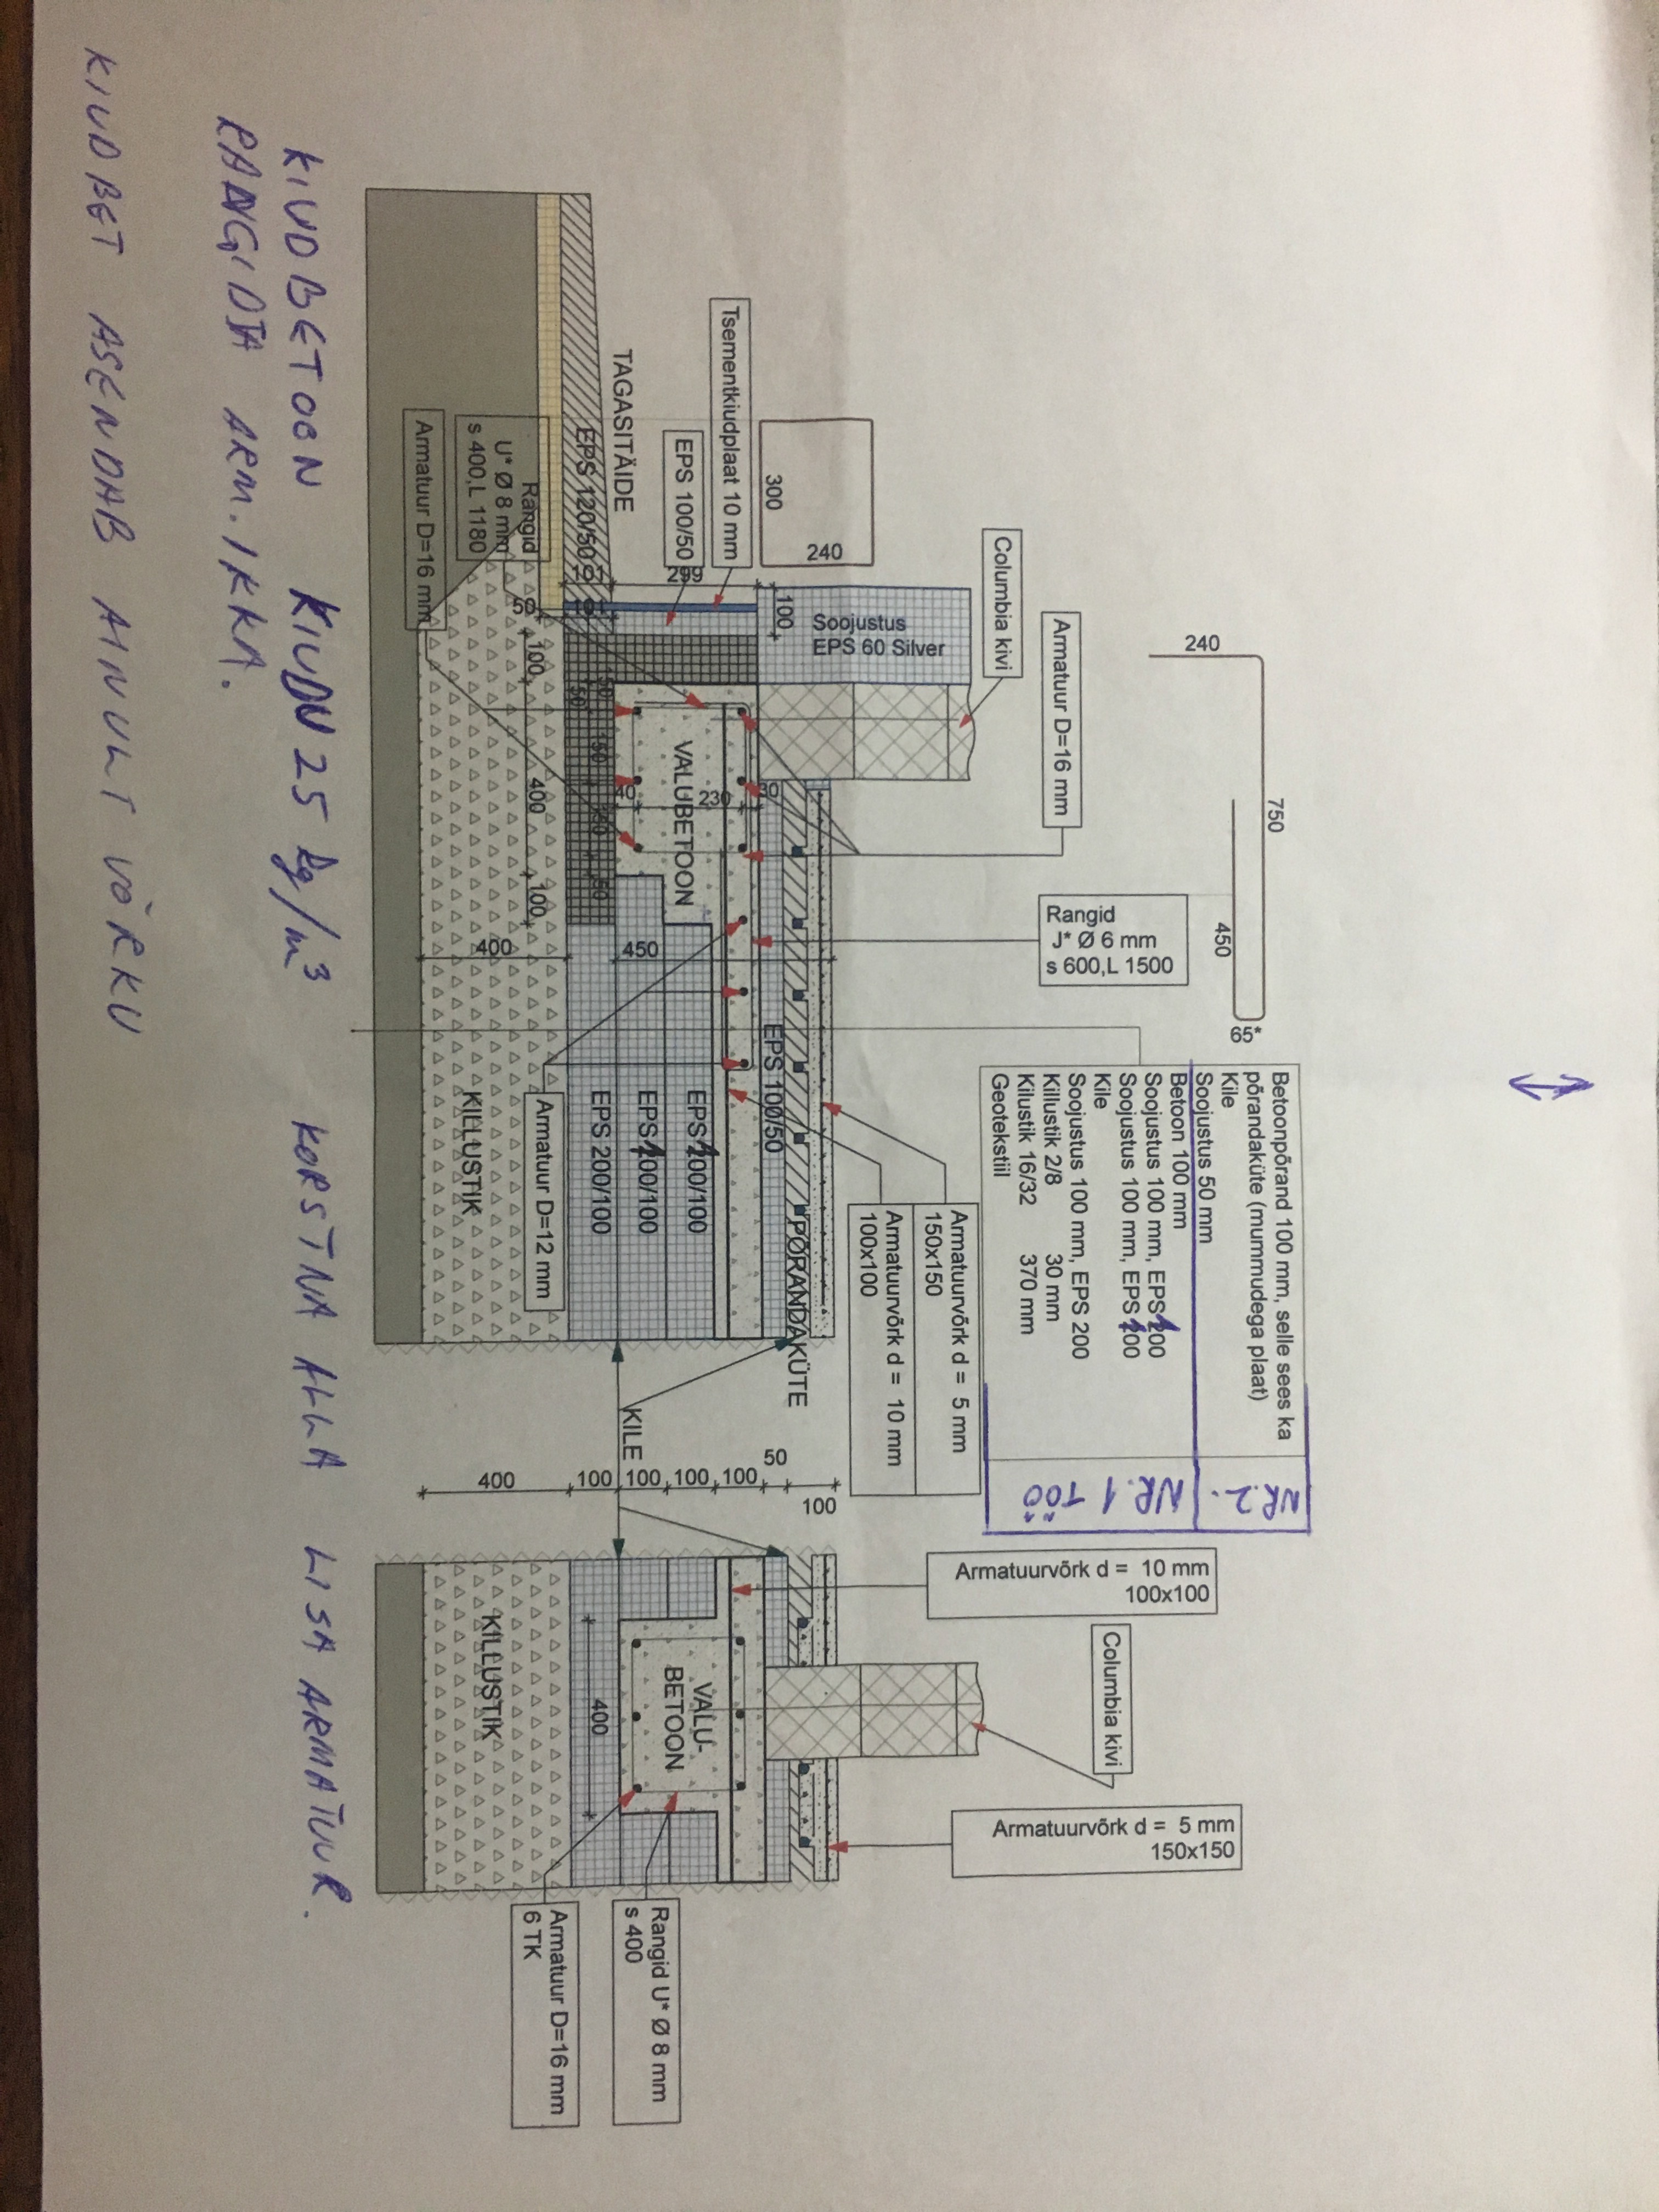 240
750
450
65*
Betoonpõrand 100 mm, selle sees ka
põrandaküte (mummudega plaat)
Kile
Soojustus 50 mm
Betoon 100 mm
Soojustus 100 mm, EPS 100
Soojustus 100 mm, EPS 100
Kile
Soojustus 100 mm, EPS 200
Killustik 2/8 30 mm
Kilustik 16/32 370 mm
Geotekstiil
NR.2.
NR.1 TÖÖ
Armatuur D=16 mm
Rangid
J* Ø 6 mm
s 600,L 1500
Columbia kivi
300
240
Tsementkiudplaat 10 mm
EPS 100/50
TAGASITÄIDE
EPS 120/50
Rangid
U* Ø 8 mm
s 400,L 1180
Armatuur D=16 mm
299
100
Soojustus
EPS 60 Silver
50
100
400
100
50
50
150
150
50
40
230
30
VALUBETOON
400
450
EPS 100/50
EPS 100/100
EPS 100/100
EPS 200/100
KILLUSTIK
Armatuur D=12 mm
PÕRANDAKÜTE
Armatuurvõrk d = 5 mm
150x150
Armatuurvõrk d = 10 mm
100x100
KILE
400
100
100
100
100
50
100
Armatuurvõrk d = 10 mm
100x100
Columbia kivi
Armatuurvõrk d = 5 mm
150x150
VALU-
BETOON
400
KILLUSTIK
Rangid U* Ø 8 mm
s 400
Armatuur D=16 mm
6 TK
KIUDBETOON KIUDU 25 kg/m³ KORSTNA ALLA LISA ARMATUUR.
RANGIDTA ARM. IKKA.
KIUDBET ASENDAB AINULT VÕRKU